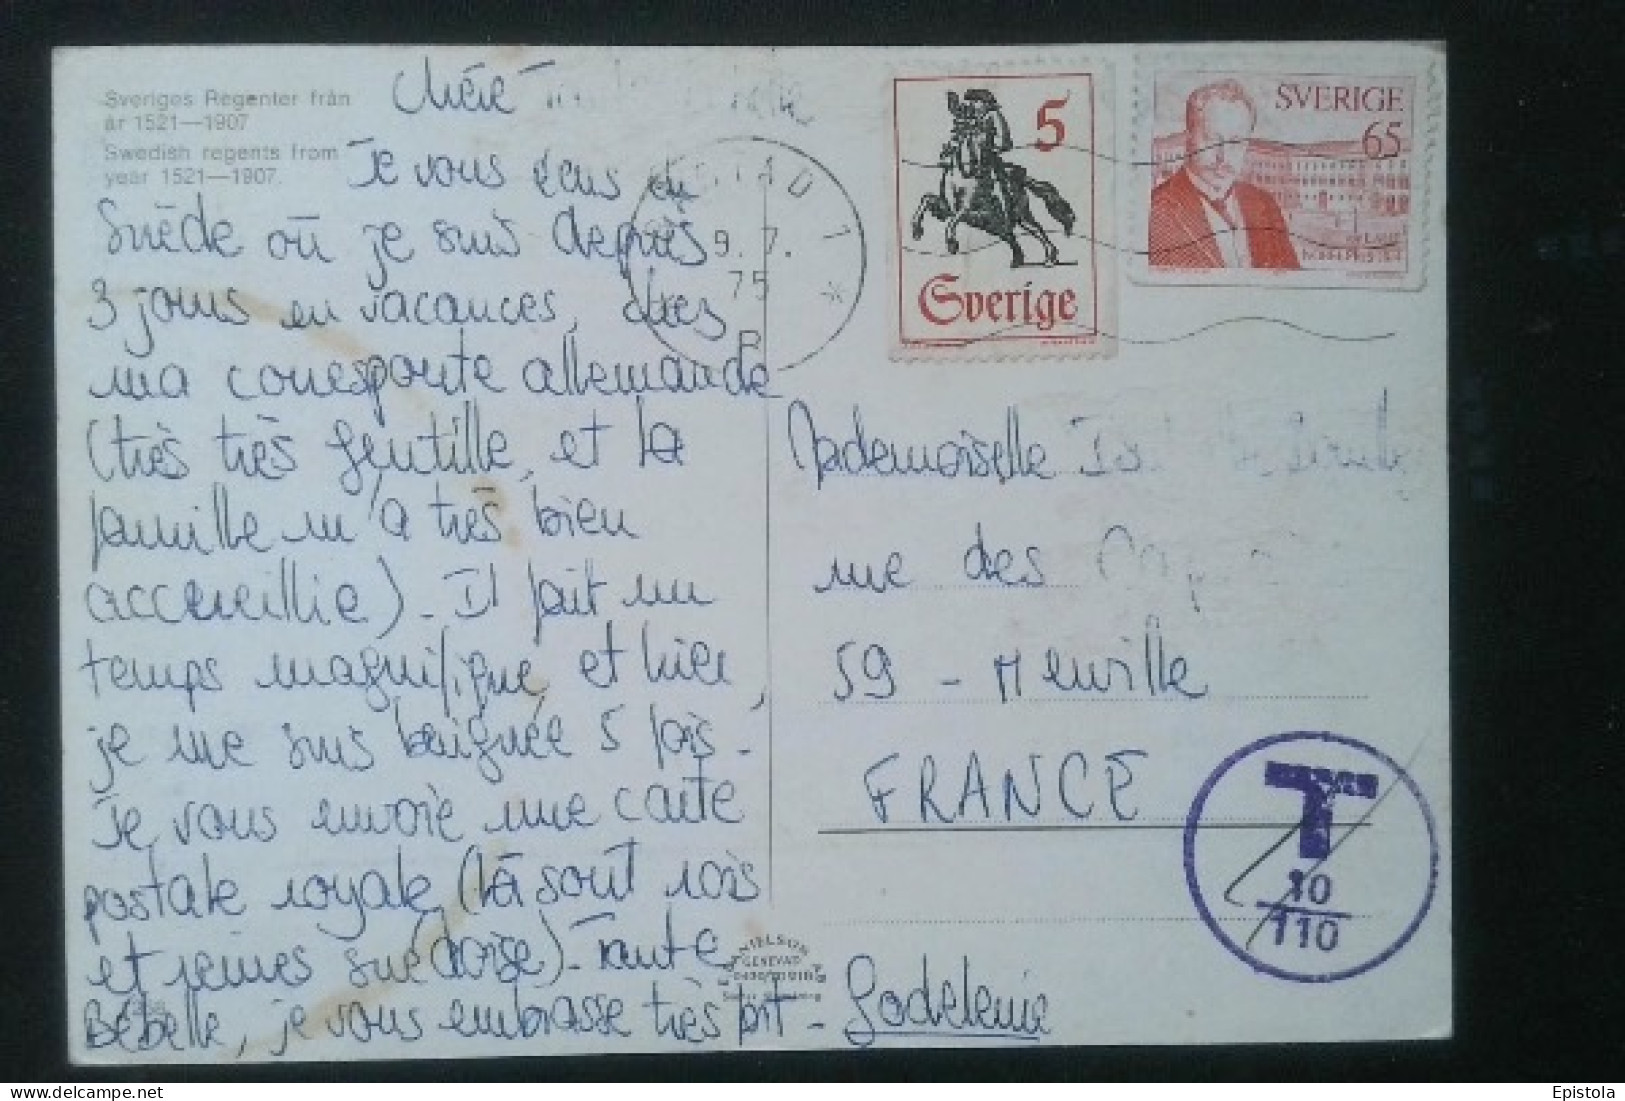 Sveriges Regenter från
år 1521—1907
Swedish regents from
year 1521—1907.
Chère
Je vous écris de
Suède où je suis depuis
3 jours en vacances, chez
ma correspondante allemande
(très très gentille, et la
famille m'a très bien
accueillie). Il fait un
temps magnifique, et hier,
je me suis baignée 5 fois.
Je vous envoie une carte
postale royale (là sont rois
et reines suédoise). Tante
Bébelle, je vous embrasse très fort -
9. 7.
75
1
5
Sverige
SVERIGE
65
Mademoiselle
rue des
59 - Merville
FRANCE
T
10
110
GENEVAD
Epistola